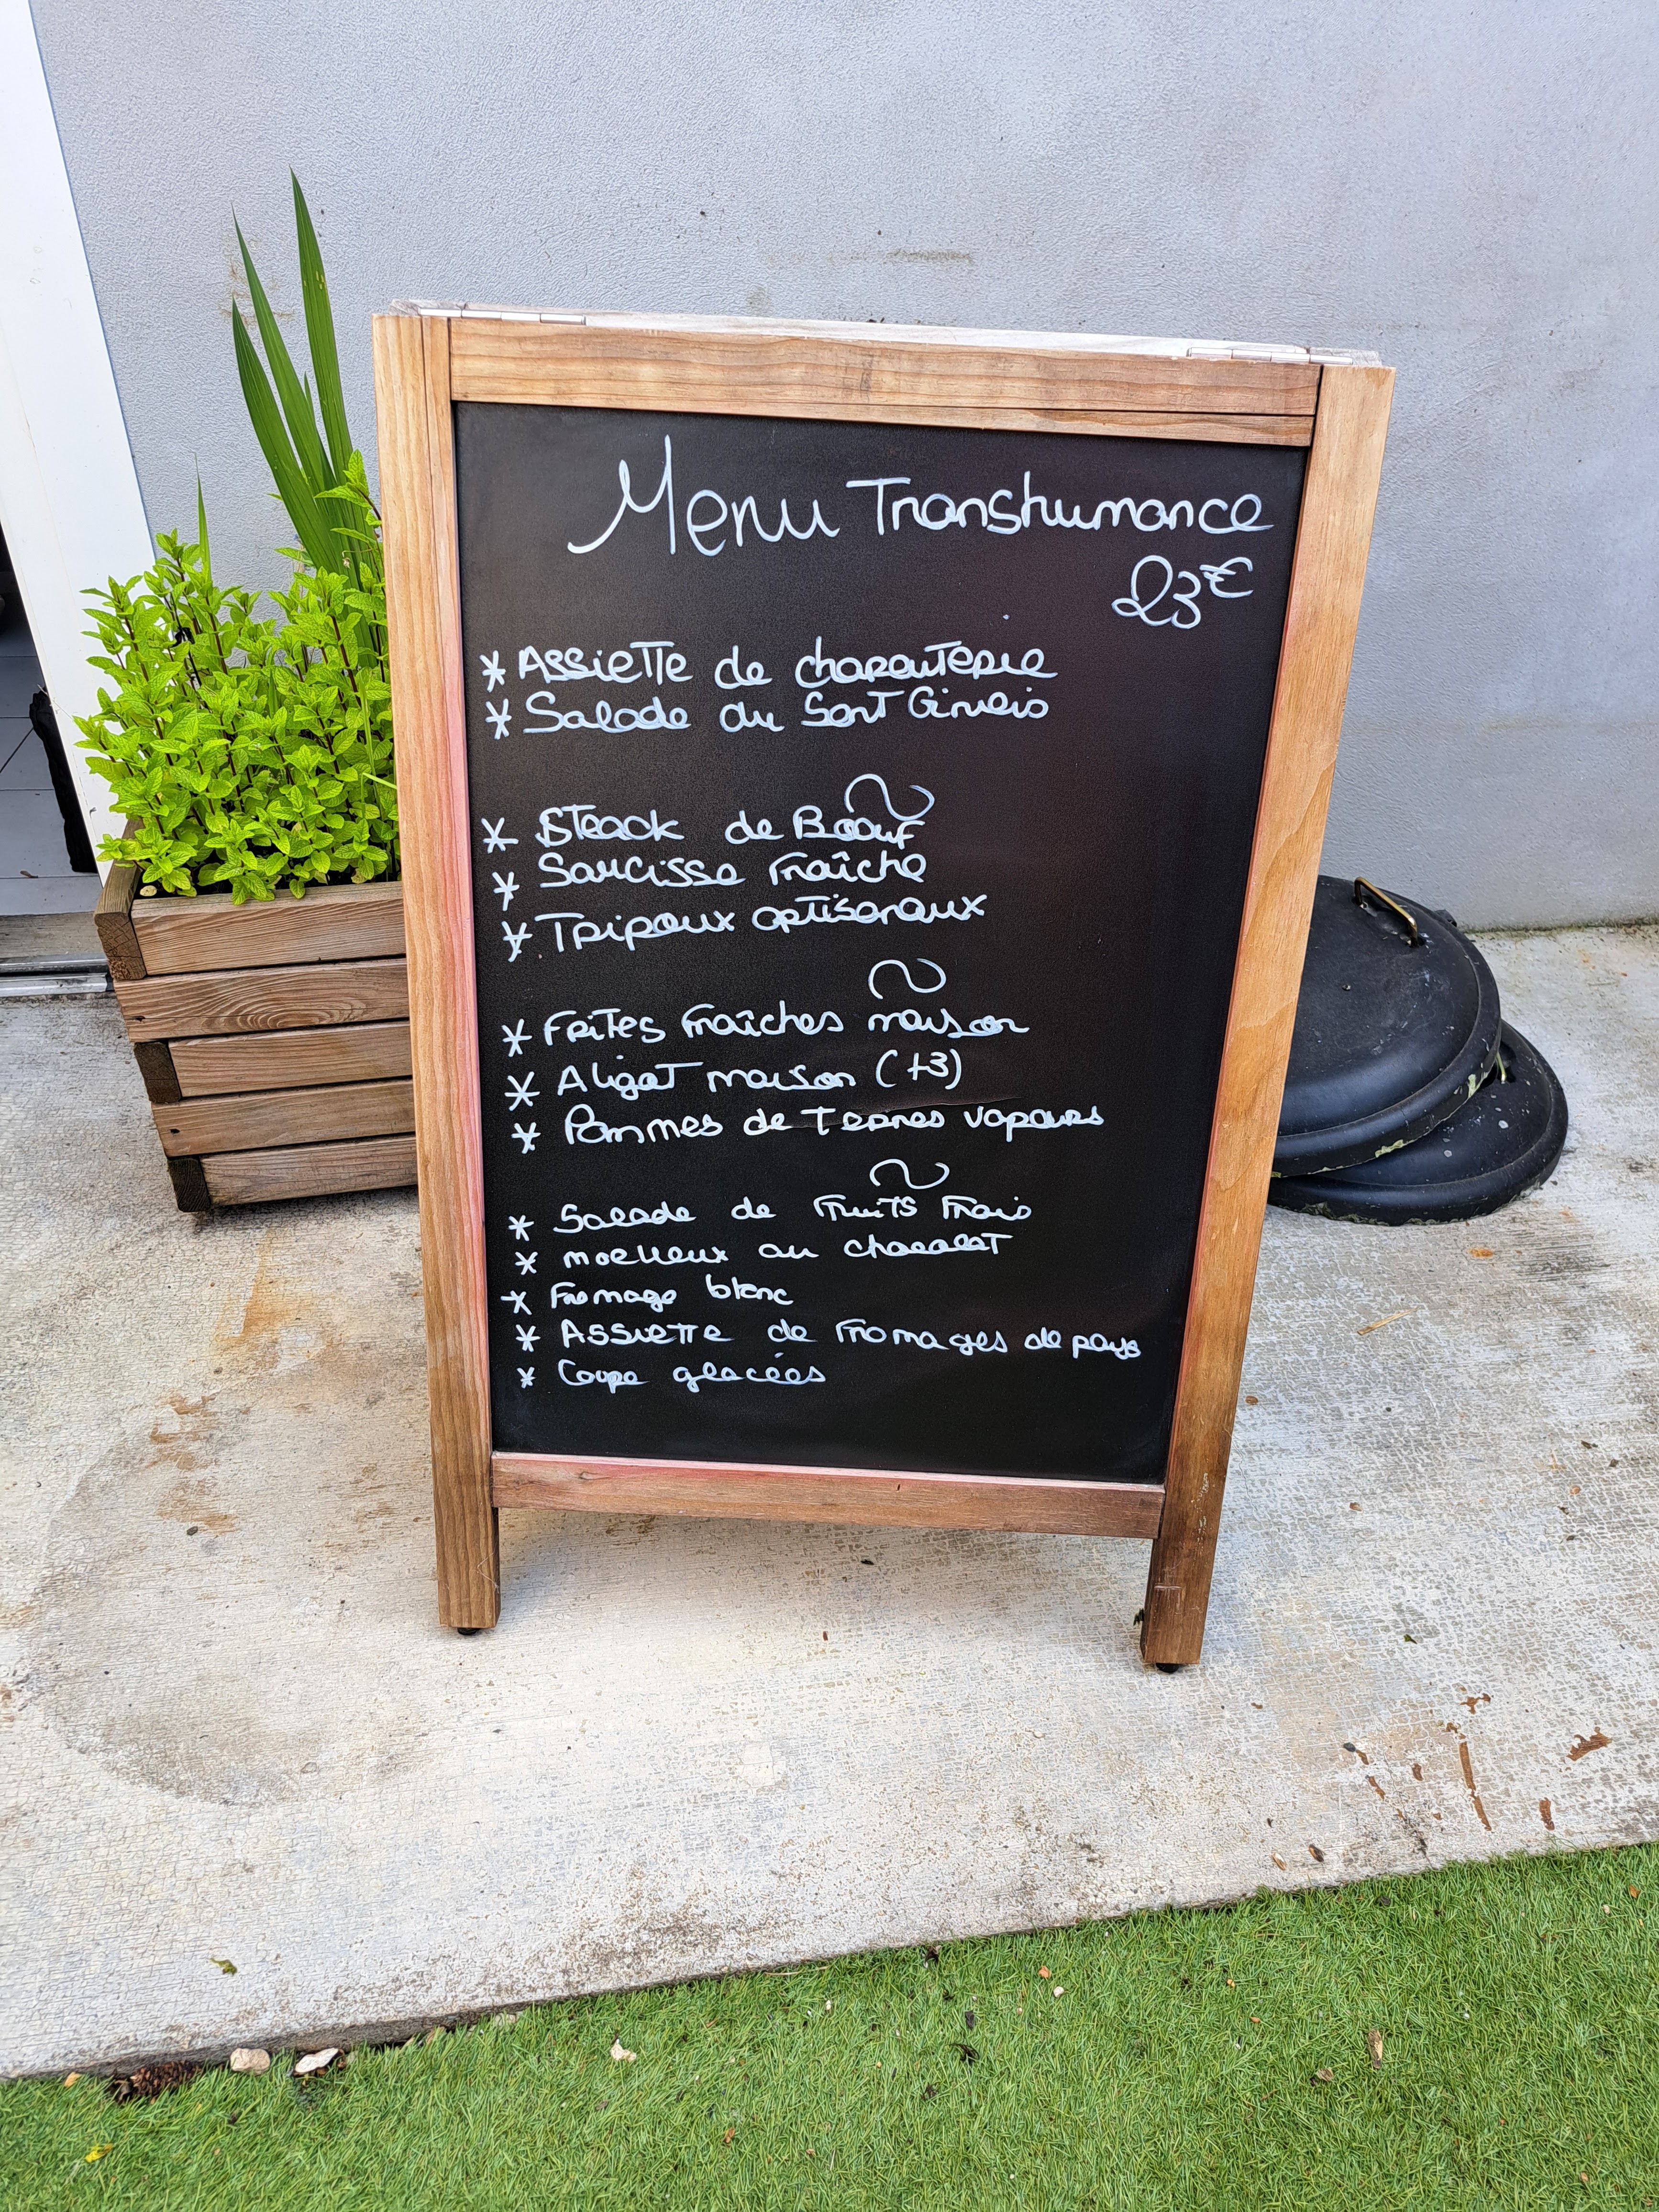 Menu Transhumance
23€
* Assiette de charcuterie
* Salade du
* Steack de Boeuf
* Saucisse fraîche
* Tripoux artisanaux
* Frites fraîches maison
* Aligot maison (+3)
* Pommes de Terres vapeurs
* Salade de Fruits Frais
* moelleux au chocolat
* Fromage blanc
* Assiette de Fromages de pays
* Coupe glacées